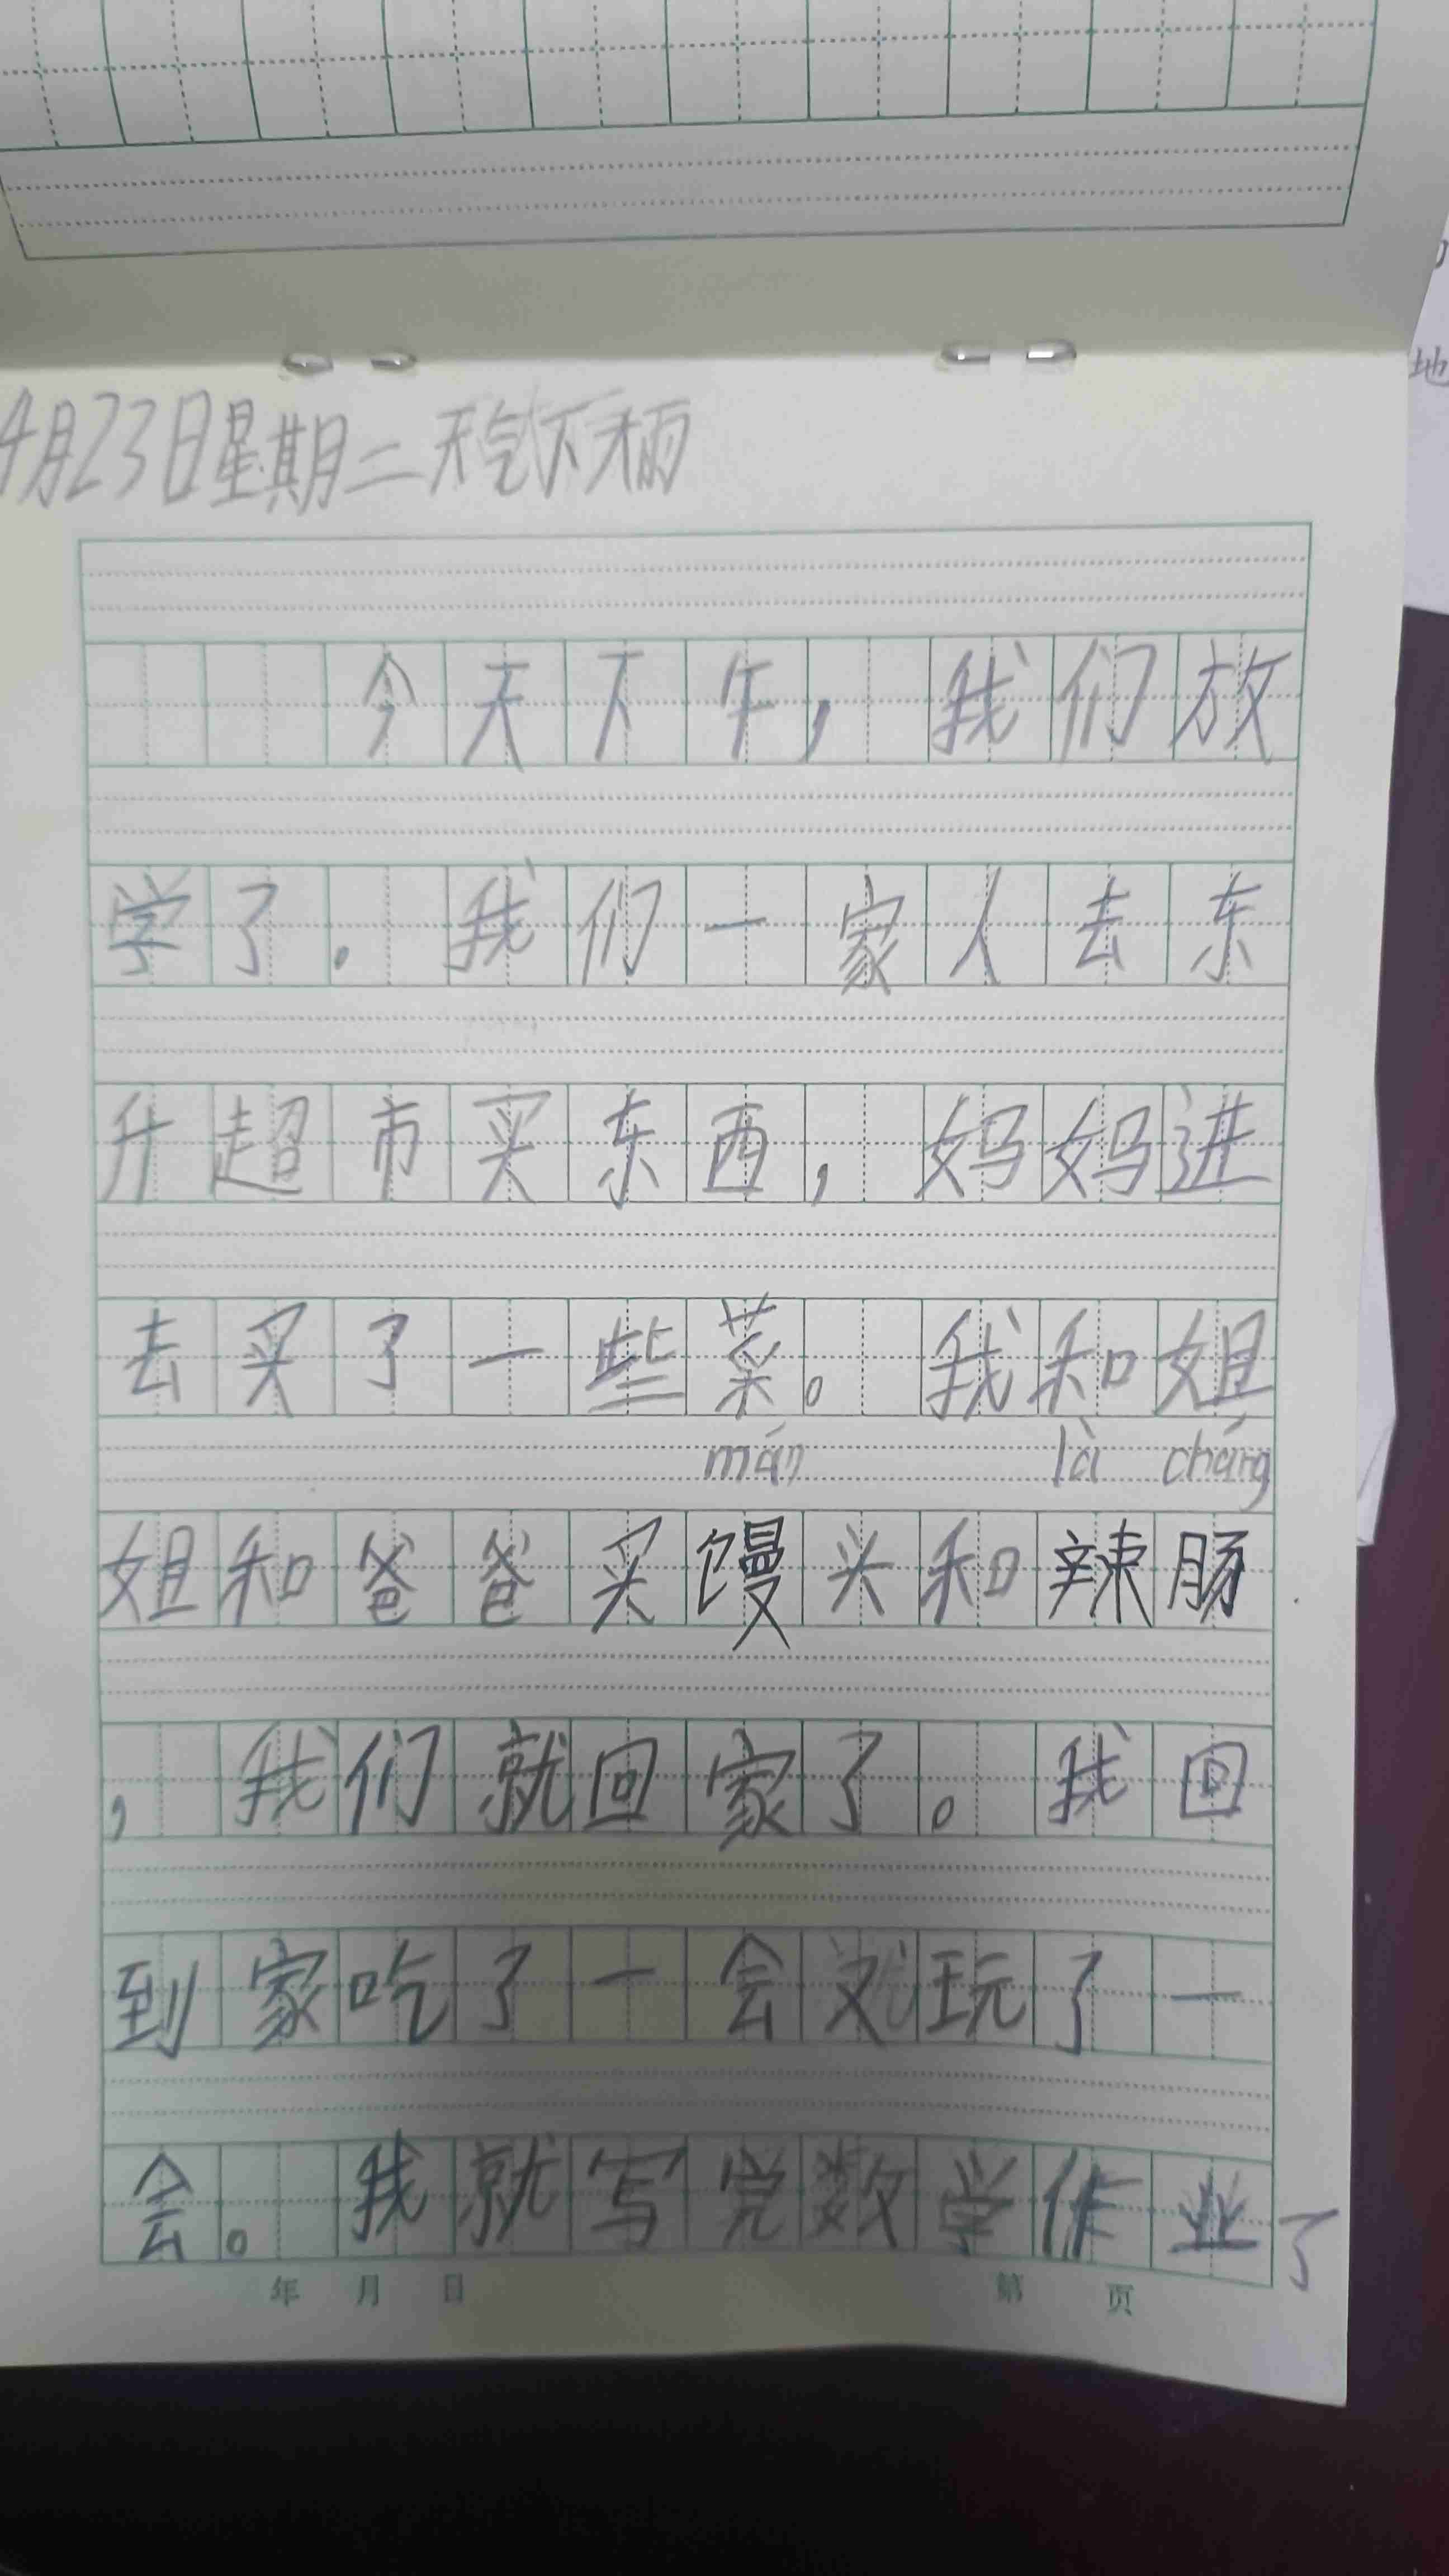 4月23日星期二天气下雨
今天下午，我们放
学了。我们一家人去东
升超市买东西，妈妈进
去买了一些菜。我和姐
mán là cháng
姐和爸爸买馒头和辣肠
，我们就回家了。我回
到家吃了一会又玩了一
会。我就写完数学作业了
年 月 日 第 页
地